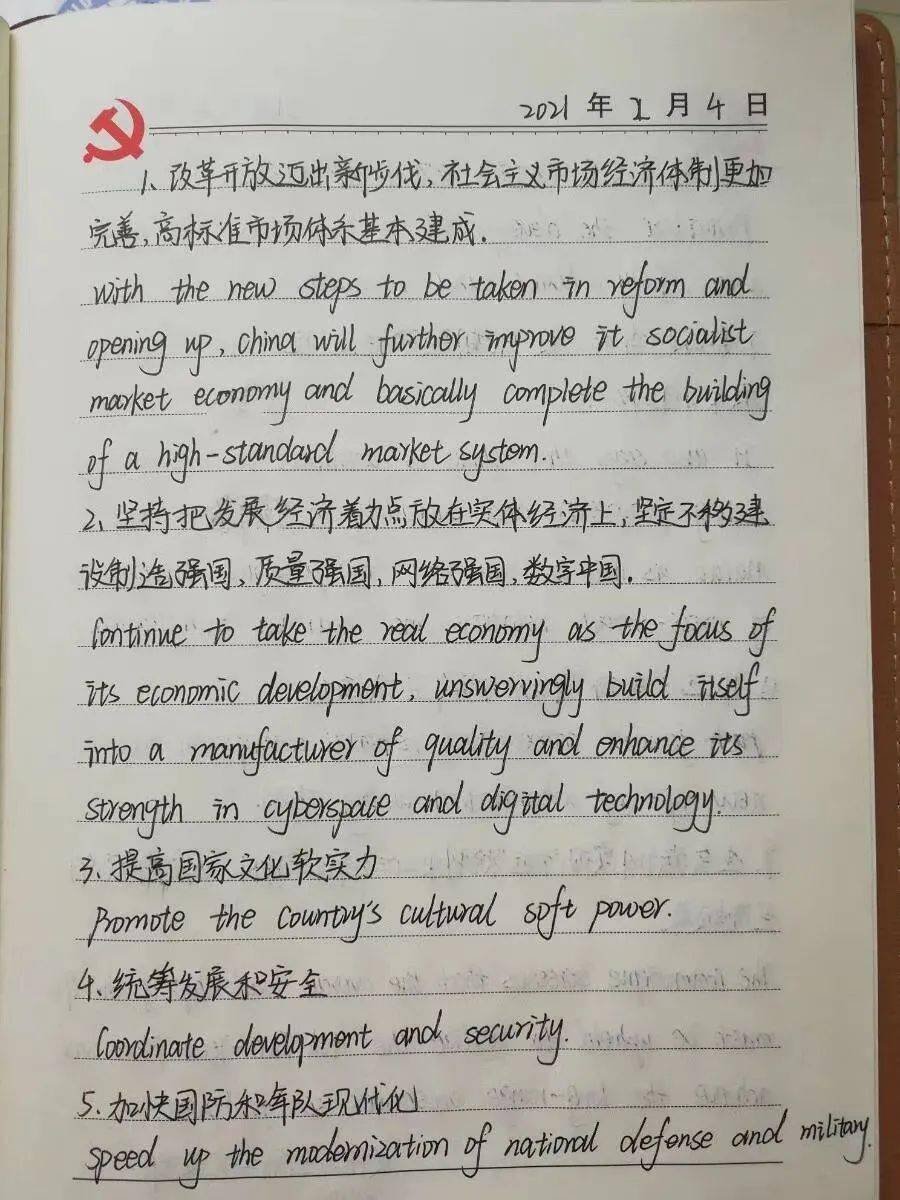 2021 年 1 月 4 日
1、改革开放迈出新步伐，社会主义市场经济体制更加
完善，高标准市场体系基本建成.
with the new steps to be taken in reform and
opening up, china will further improve it socialist
market economy and basically complete the building
of a high-standard market system.
2、坚持把发展经济着力点放在实体经济上，坚定不移建
设制造强国，质量强国，网络强国，数字中国.
Continue to take the real economy as the focus of
its economic development, unswervingly build itself
into a manufacturer of quality and enhance its
strength in cyberspace and digital technology.
3、提高国家文化软实力
Promote the country's cultural soft power.
4、统筹发展和安全
Coordinate development and security.
5、加快国防和军队现代化
speed up the modernization of national defense and military.